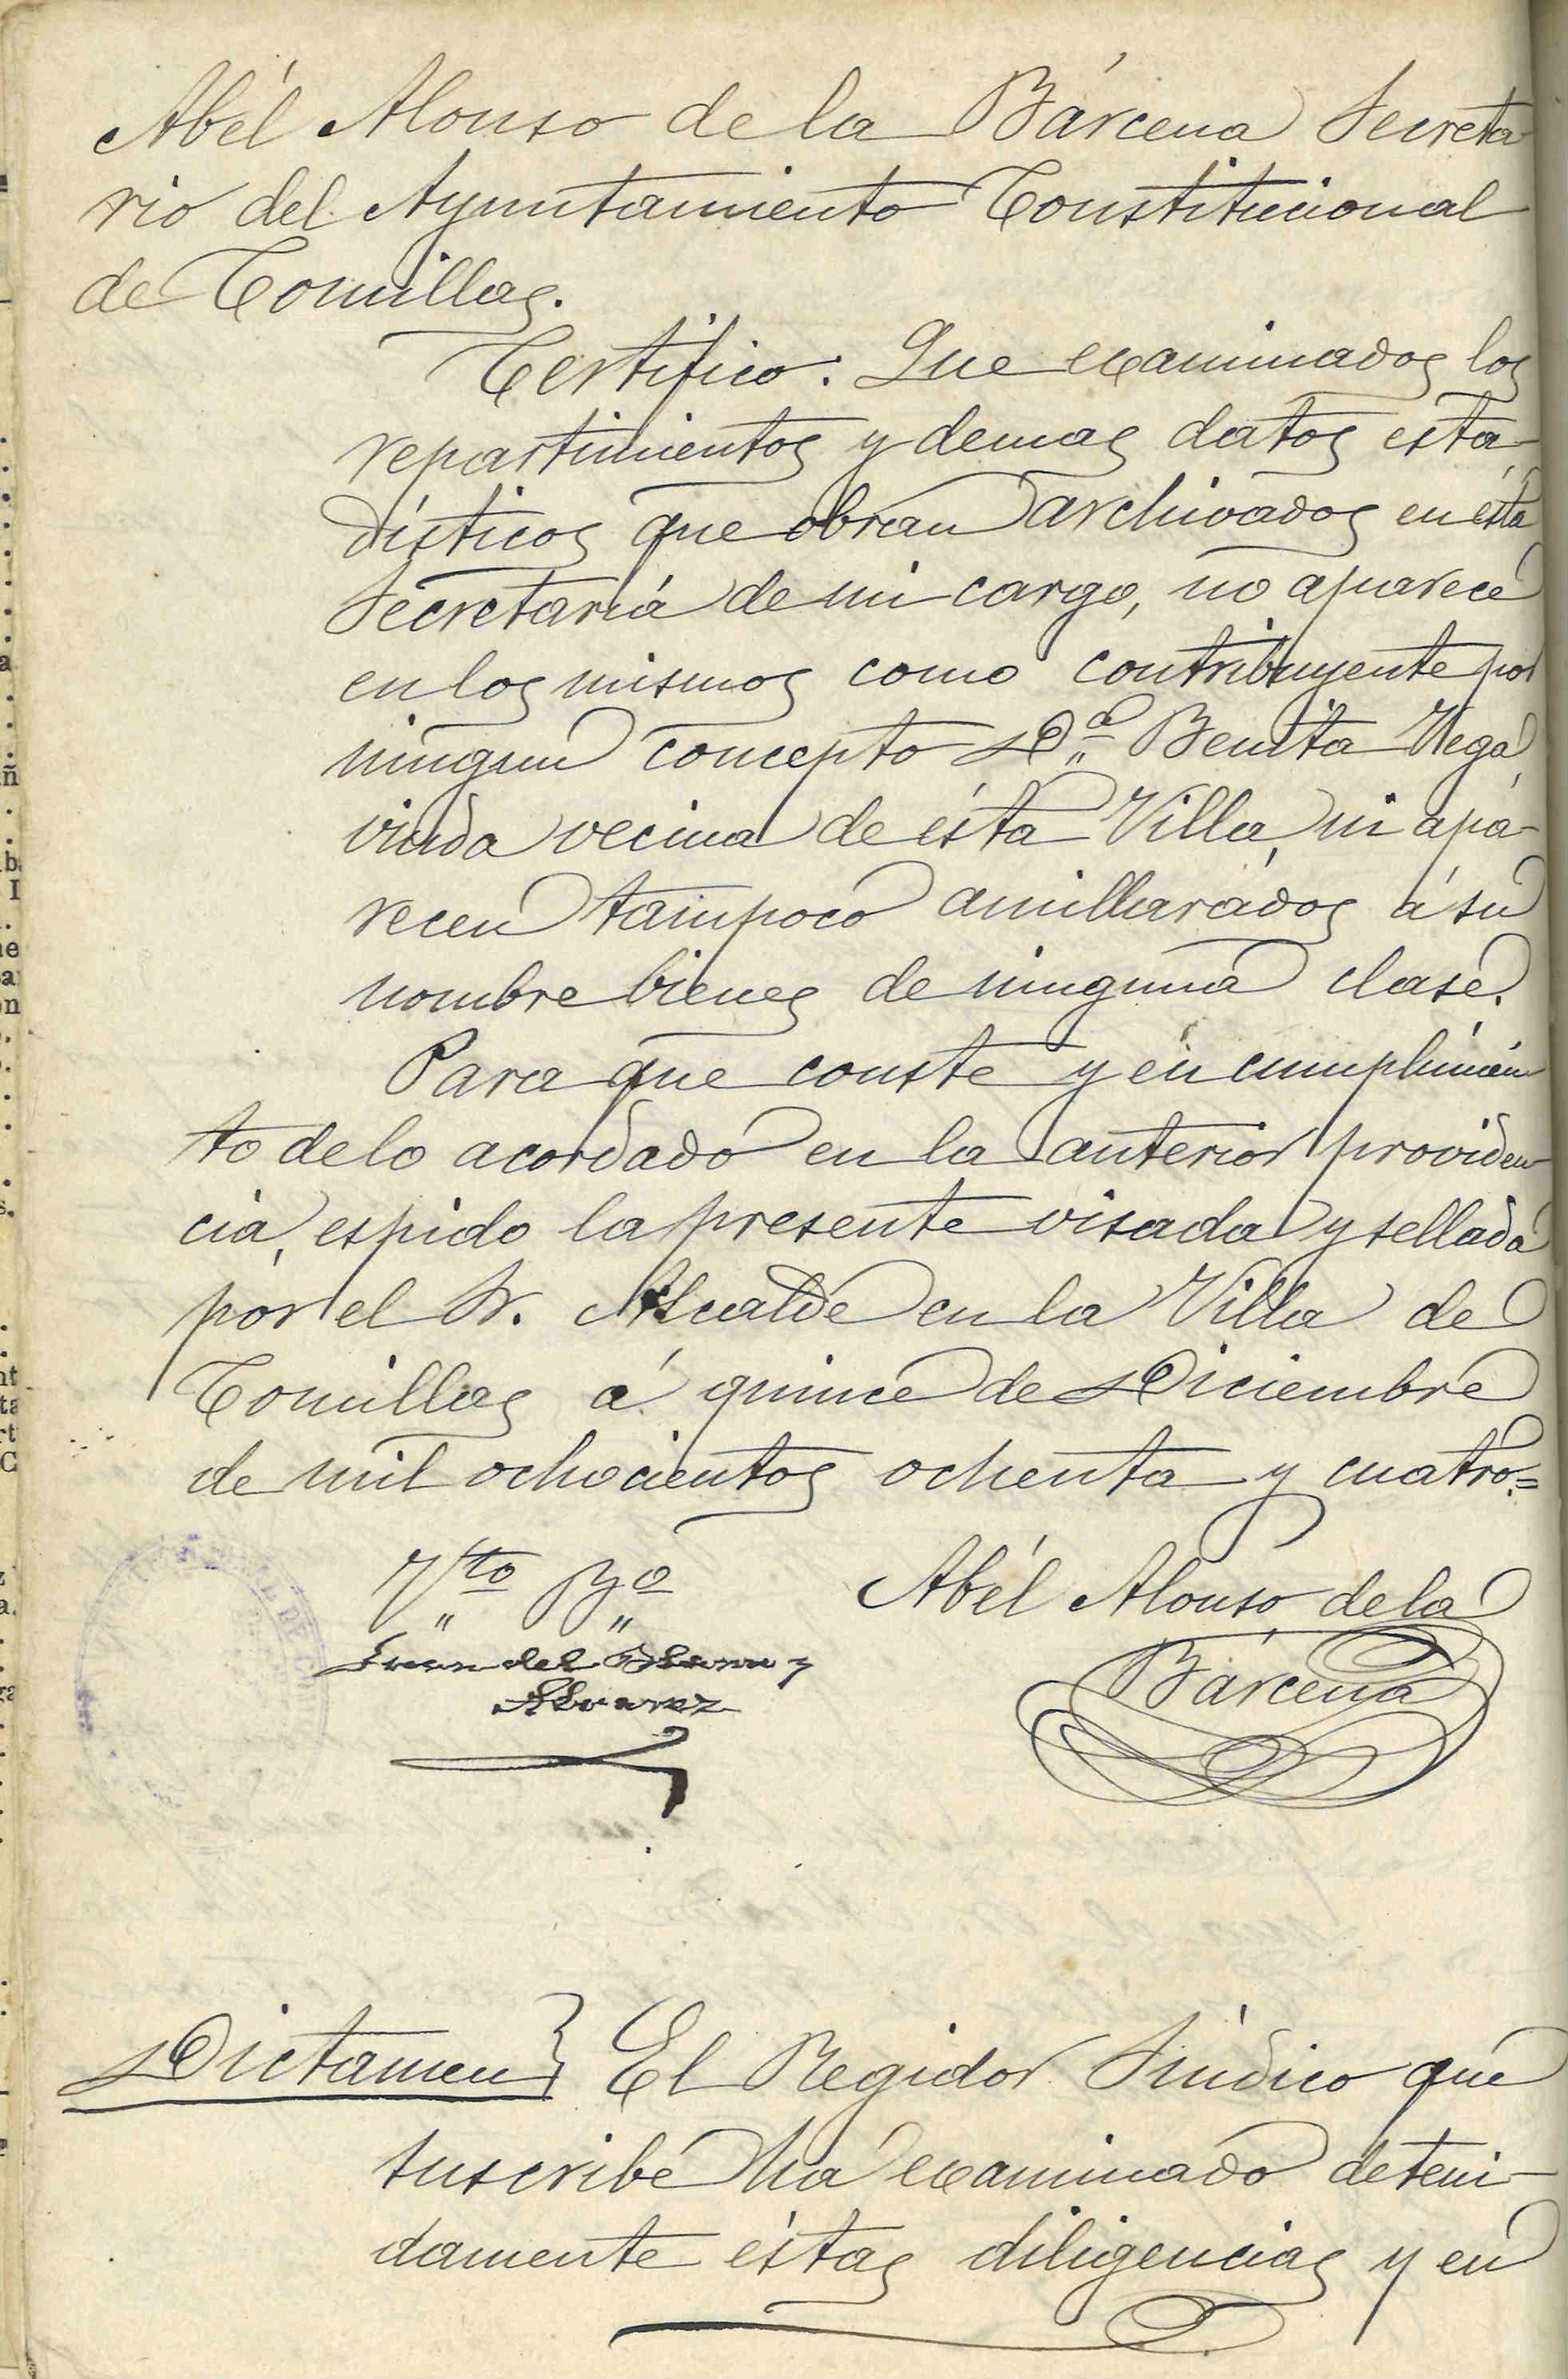 Abél Alonso de la Bárcena Secreta-
rio del Ayuntamiento Constitucional
de Comillas.
Certifico: Que examinados los
repartimientos y demas datos esta-
dísticos que obran archivados en ésta
Secretaría de mi cargo, no aparece
en los mismos como contribuyente por
ningun concepto Dª Benita Vega,
viuda vecina de ésta Villa, ni apa-
recen tampoco amillarados á su
nombre bienes de ninguna clase.
Para que conste y en cumplimien-
to de lo acordado en la anterior providen-
cia, espido la presente visada y sellada
por el Sr. Alcalde en la Villa de
Comillas á quince de Diciembre
de mil ochocientos ochenta y cuatro.=
Vto Bº
Juan del
Alvarez
Abél Alonso de la
Bárcena
Dictamen} El Regidor Síndico que
suscribe há examinado deteni-
damente éstas diligencias y en